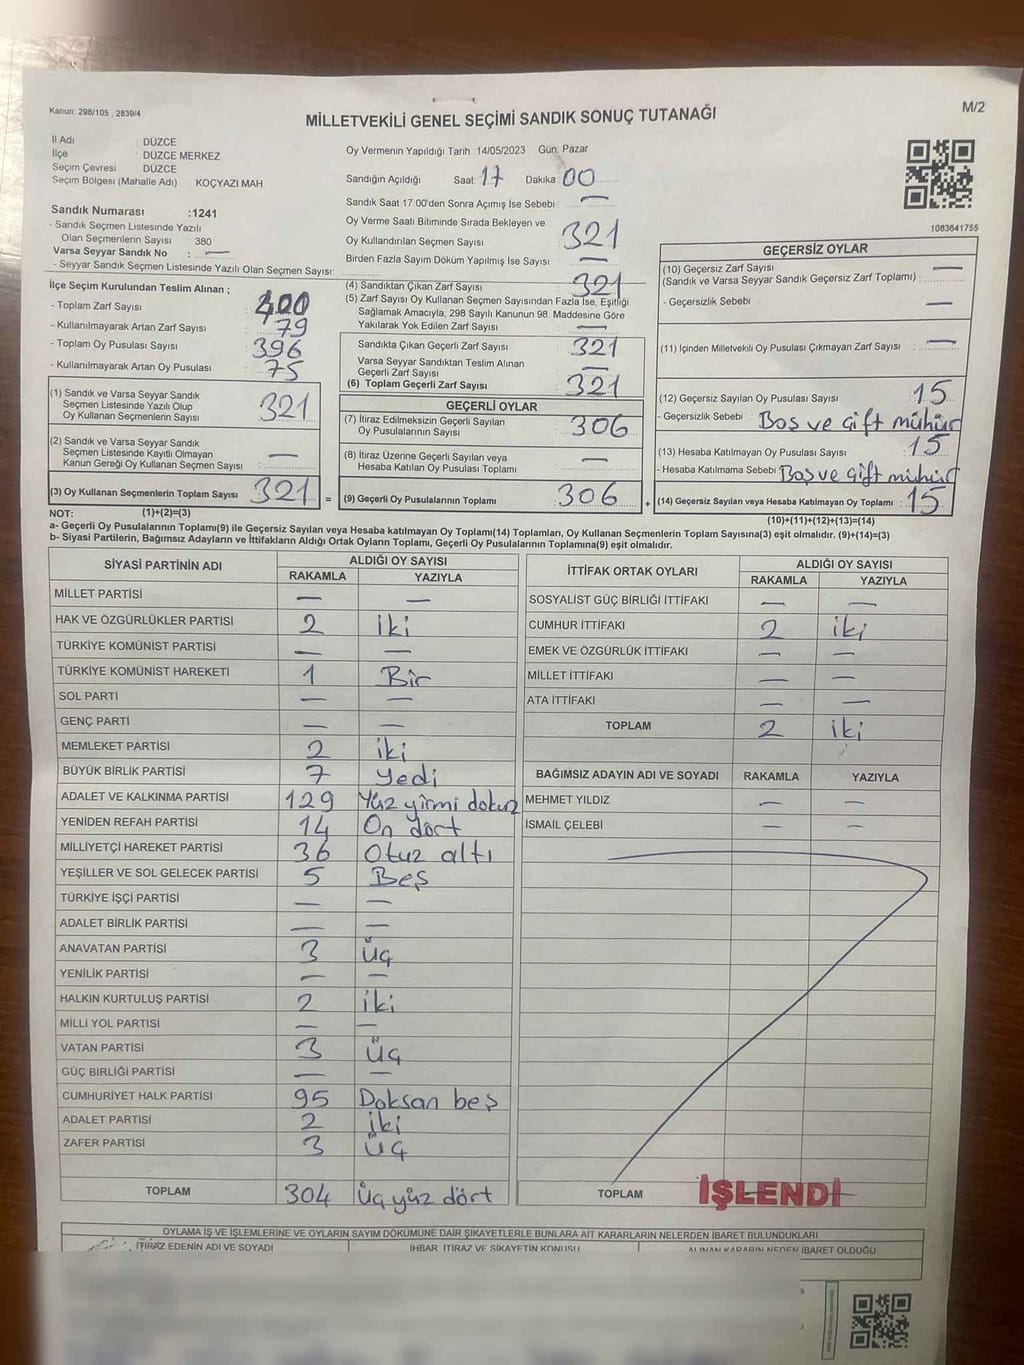 Kanun: 298/105 , 2839/4
MİLLETVEKİLİ GENEL SEÇİMİ SANDIK SONUÇ TUTANAĞI
M/2
İl Adı : DÜZCE
İlçe : DÜZCE MERKEZ
Seçim Çevresi : DÜZCE
Seçim Bölgesi (Mahalle Adı) : KOÇYAZI MAH
Sandık Numarası :1241
- Sandık Seçmen Listesinde Yazılı
Olan Seçmenlerin Sayısı : 380
Varsa Seyyar Sandık No : —
- Seyyar Sandık Seçmen Listesinde Yazılı Olan Seçmen Sayısı:
Oy Vermenin Yapıldığı Tarih :14/05/2023 Gün: Pazar
Sandığın Açıldığı Saat: 17 Dakika: 00
Sandık Saat 17.00'den Sonra Açımış İse Sebebi: —
Oy Verme Saati Bitiminde Sırada Bekleyen ve
Oy Kullandırılan Seçmen Sayısı 321
Birden Fazla Sayım Döküm Yapılmış İse Sayısı : —
1083641755
İlçe Seçim Kurulundan Teslim Alınan ;
- Toplam Zarf Sayısı : 400
- Kullanılmayarak Artan Zarf Sayısı : 79
- Toplam Oy Pusulası Sayısı : 396
- Kullanılmayarak Artan Oy Pusulası : 75
(1) Sandık ve Varsa Seyyar Sandık
Seçmen Listesinde Yazılı Olup
Oy Kullanan Seçmenlerin Sayısı : 321
(2) Sandık ve Varsa Seyyar Sandık
Seçmen Listesinde Kayıtlı Olmayan
Kanun Gereği Oy Kullanan Seçmen Sayısı : —
(3) Oy Kullanan Seçmenlerin Toplam Sayısı : 321 =
(1)+(2)=(3)
(4) Sandıktan Çıkan Zarf Sayısı : 321
(5) Zarf Sayısı Oy Kullanan Seçmen Sayısından Fazla İse, Eşitliği
Sağlamak Amacıyla; 298 Sayılı Kanunun 98. Maddesine Göre
Yakılarak Yok Edilen Zarf Sayısı : —
Sandıkta Çıkan Geçerli Zarf Sayısı : 321
Varsa Seyyar Sandıktan Teslim Alınan
Geçerli Zarf Sayısı : —
(6) Toplam Geçerli Zarf Sayısı : 321
GEÇERLİ OYLAR
(7) İtiraz Edilmeksizin Geçerli Sayılan
Oy Pusulalarının Sayısı : 306
(8) İtiraz Üzerine Geçerli Sayılan veya
Hesaba Katılan Oy Pusulası Toplamı : —
(9) Geçerli Oy Pusulalarının Toplamı : 306 +
GEÇERSİZ OYLAR
(10) Geçersiz Zarf Sayısı —
(Sandık ve Varsa Seyyar Sandık Geçersiz Zarf Toplamı) :
- Geçersizlik Sebebi : —
(11) İçinden Milletvekili Oy Pusulası Çıkmayan Zarf Sayısı : —
(12) Geçersiz Sayılan Oy Pusulası Sayısı : 15
- Geçersizlik Sebebi : Boş ve çift mühür
(13) Hesaba Katılmayan Oy Pusulası Sayısı : 15
- Hesaba Katılmama Sebebi : Boş ve çift mühür
(14) Geçersiz Sayılan veya Hesaba Katılmayan Oy Toplamı : 15
(10)+(11)+(12)+(13)=(14)
NOT:
a- Geçerli Oy Pusulalarının Toplamı(9) ile Geçersiz Sayılan veya Hesaba katılmayan Oy Toplamı(14) Toplamları, Oy Kullanan Seçmenlerin Toplam Sayısına(3) eşit olmalıdır. (9)+(14)=(3)
b- Siyasi Partilerin, Bağımsız Adayların ve İttifakların Aldığı Ortak Oyların Toplamı, Geçerli Oy Pusulalarının Toplamına(9) eşit olmalıdır.
SİYASİ PARTİNİN ADI ALDIĞI OY SAYISI
RAKAMLA YAZIYLA
MİLLET PARTİSİ — —
HAK VE ÖZGÜRLÜKLER PARTİSİ 2 iki
TÜRKİYE KOMÜNİST PARTİSİ — —
TÜRKİYE KOMÜNİST HAREKETİ 1 Bir
SOL PARTİ — —
GENÇ PARTİ — —
MEMLEKET PARTİSİ 2 iki
BÜYÜK BİRLİK PARTİSİ 7 yedi
ADALET VE KALKINMA PARTİSİ 129 Yüz yirmi dokuz
YENİDEN REFAH PARTİSİ 14 On dört
MİLLİYETÇİ HAREKET PARTİSİ 36 Otuz altı
YEŞİLLER VE SOL GELECEK PARTİSİ 5 Beş
TÜRKİYE İŞÇİ PARTİSİ — —
ADALET BİRLİK PARTİSİ — —
ANAVATAN PARTİSİ 3 üç
YENİLİK PARTİSİ — —
HALKIN KURTULUŞ PARTİSİ 2 iki
MİLLİ YOL PARTİSİ — —
VATAN PARTİSİ 3 üç
GÜÇ BİRLİĞİ PARTİSİ — —
CUMHURİYET HALK PARTİSİ 95 Doksan beş
ADALET PARTİSİ 2 iki
ZAFER PARTİSİ 3 üç
TOPLAM 304 üç yüz dört
İTTİFAK ORTAK OYLARI ALDIĞI OY SAYISI
RAKAMLA YAZIYLA
SOSYALİST GÜÇ BİRLİĞİ İTTİFAKI — —
CUMHUR İTTİFAKI 2 iki
EMEK VE ÖZGÜRLÜK İTTİFAKI — —
MİLLET İTTİFAKI — —
ATA İTTİFAKI — —
TOPLAM 2 iki
BAĞIMSIZ ADAYIN ADI VE SOYADI RAKAMLA YAZIYLA
MEHMET YILDIZ — —
İSMAİL ÇELEBİ — —
TOPLAM İŞLENDİ
OYLAMA İŞ VE İŞLEMLERİNE VE OYLARIN SAYIM DÖKÜMÜNE DAİR ŞİKAYETLERLE BUNLARA AİT KARARLARIN NELERDEN İBARET BULUNDUKLARI
İTİRAZ EDENİN ADI VE SOYADI İHBAR, İTİRAZ VE ŞİKAYETİN KONUSU ALINAN KARARIN NEDEN İBARET OLDUĞU